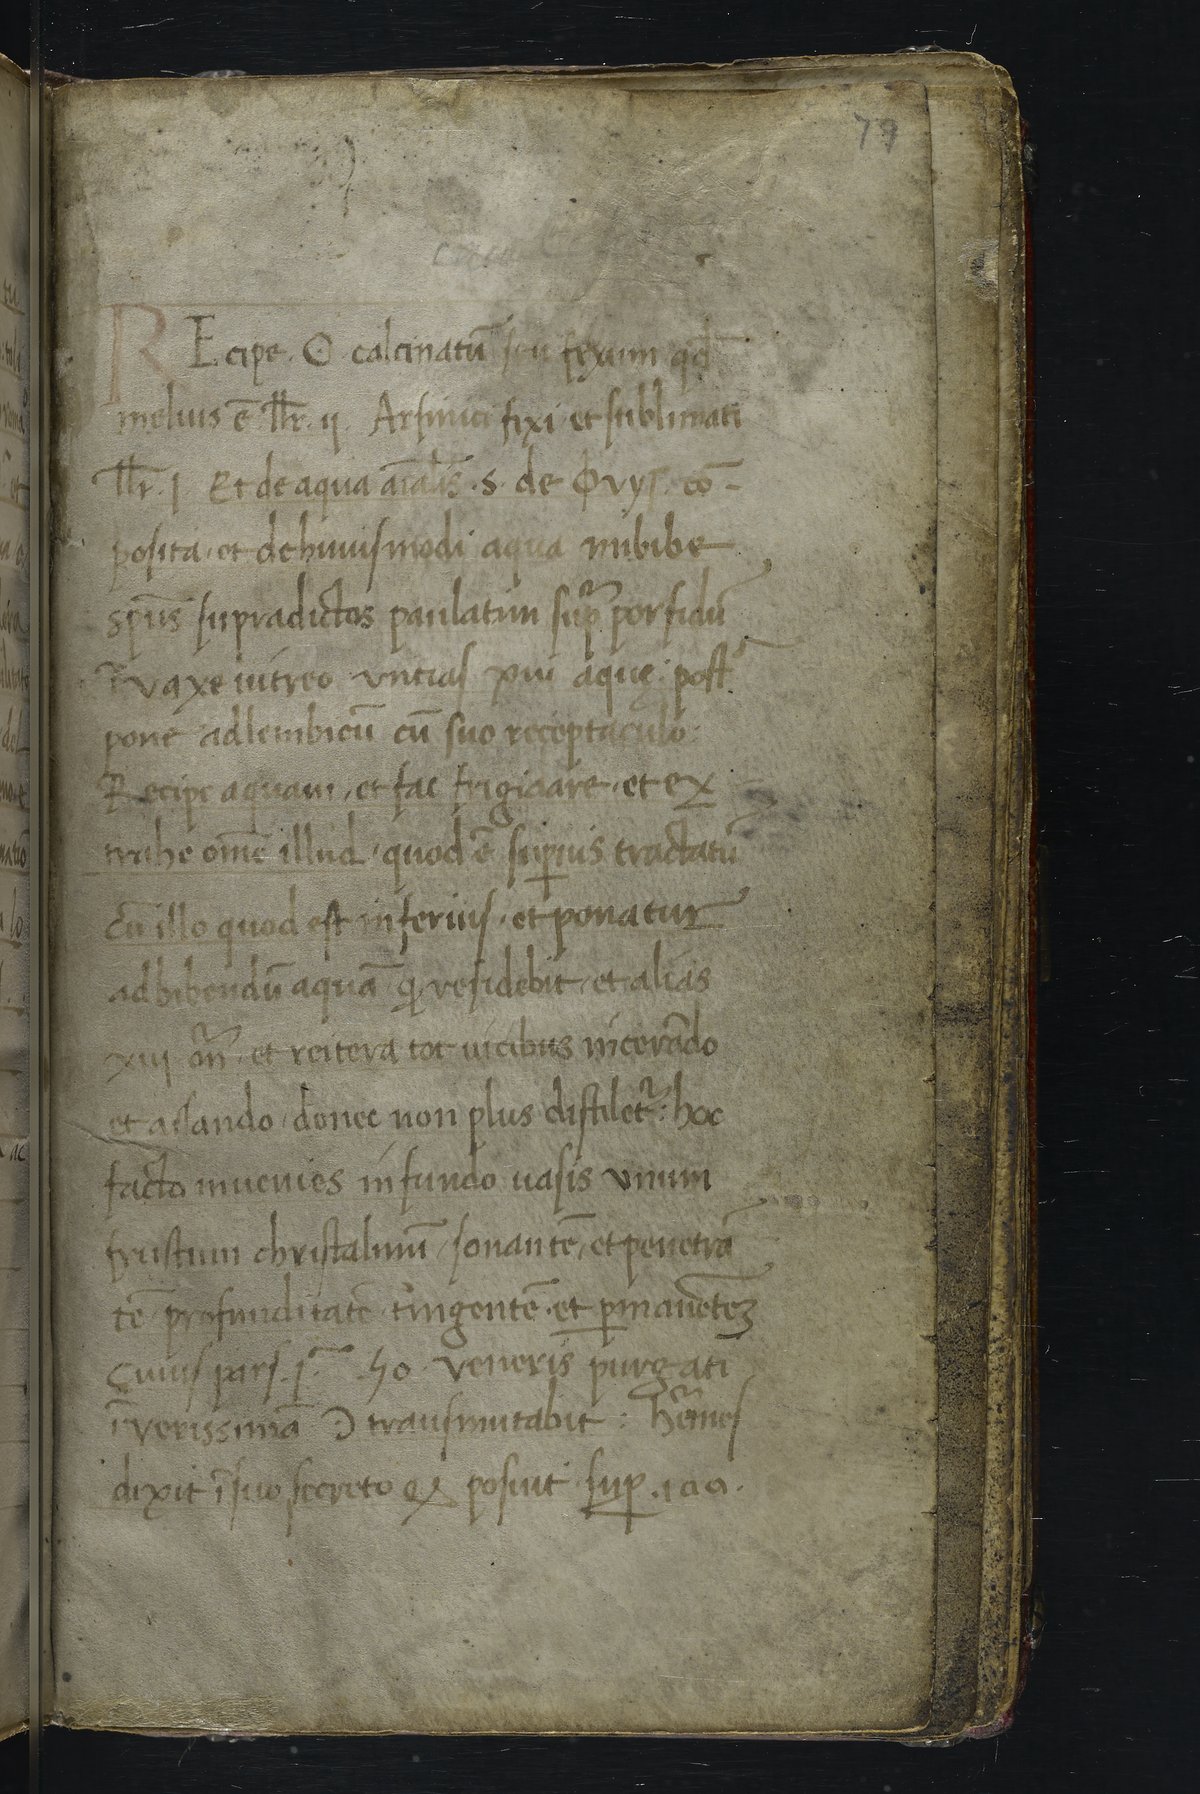 79
REcipe. ☉ calcinatū seu fixum qd̄
melius ē łłr. ij Arsinici fixi et sublimati
łłr. j Et de aqua aīalis .s. de ovys. cō-
posita. et dehuiusmodi aqua imbibe
sp̄us supradictos paulatim sup̄ porfidū
ī vaxe vitreo uncias xiij aque: post
pone adlembicū cū suo receptaculo:
Recipe aquam, et fac frigidare. et ex
trahe om̄e illud. quod ē sup̱ius tractatū
cū illo quod est inferius. et ponatur
adbibendū aquā q̱ residebit. et alias
xiij on̄. et reitera tot vicibus incerādo
et assando. donec non plus distilet̄: hoc
facto invenies infundo vasis unum
frustum christalinū, sonantē, et penetrā
tē profunditatē tīngentē. et p̱manētez
Cuius pars. jᵃ. 50. veneris purgati
ī verissimā ☽ transmutabit: h̄ermes
dixit ī suo secreto ꝙ posuit. sup̱. 100.